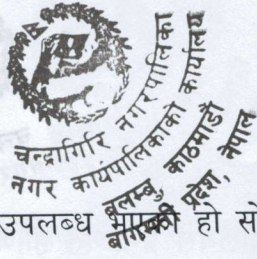 चन्द्रागिरि नगरपालिका
नगर कार्यपालिकाको कार्यालय
बलम्बु, काठमाडौं
बागमती प्रदेश, नेपाल
उपलब्ध भएको हो सो